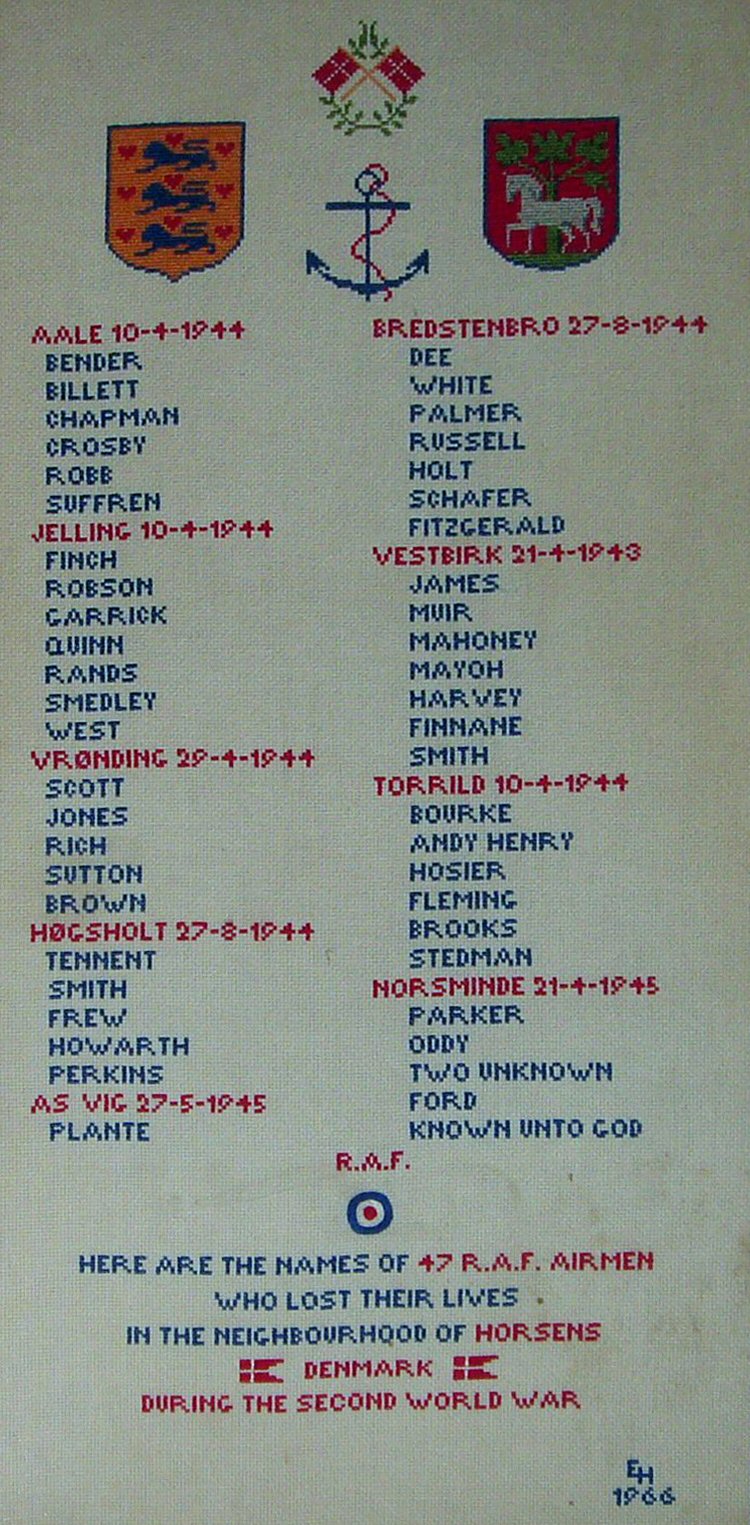 AALE 10-4-1944
BENDER
BILLETT
CHAPMAN
CROSBY
ROBB
SUFFREN
JELLING 10-4-1944
FINCH
ROBSON
GARRICK
QUINN
RANDS
SMEDLEY
WEST
VRØNDING 29-4-1944
SCOTT
JONES
RICH
SUTTON
BROWN
HØGSHOLT 27-8-1944
TENNENT
SMITH
FREW
HOWARTH
PERKINS
AS VIG 27-5-1945
PLANTE
BREDSTENBRO 27-8-1944
DEE
WHITE
PALMER
RUSSELL
HOLT
SCHAFER
FITZGERALD
VESTBIRK 21-4-1943
JAMES
MUIR
MAHONEY
MAYOH
HARVEY
FINNANE
SMITH
TORRILD 10-4-1944
BOURKE
ANDY HENRY
HOSIER
FLEMING
BROOKS
STEDMAN
NORSMINDE 21-4-1945
PARKER
ODDY
TWO UNKNOWN
FORD
KNOWN UNTO GOD
R.A.F.
HERE ARE THE NAMES OF 47 R.A.F. AIRMEN
WHO LOST THEIR LIVES
IN THE NEIGHBOURHOOD OF HORSENS
DENMARK
DURING THE SECOND WORLD WAR
EH
1966